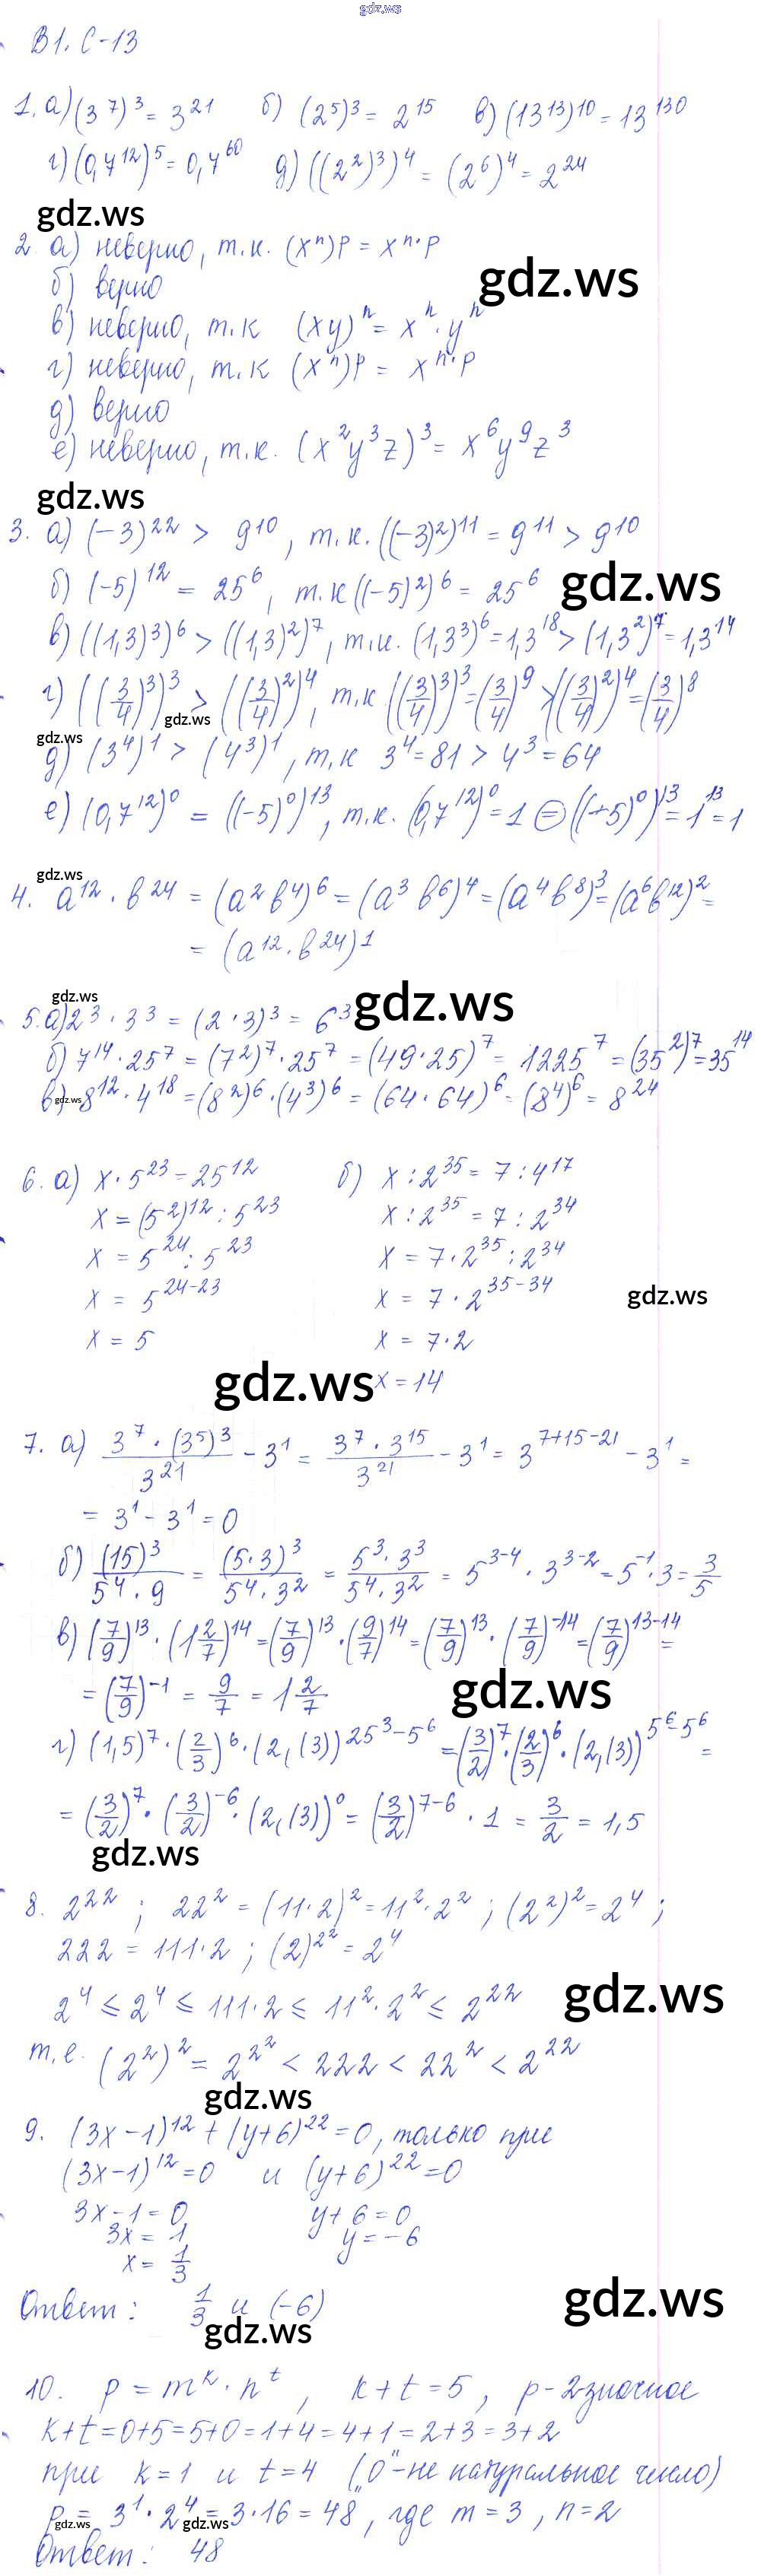 gdz.ws
В1. С-13
1. а) (3^7)^3 = 3^21   б) (2^5)^3 = 2^15   в) (13^13)^10 = 13^130
г) (0,7^12)^5 = 0,7^60   д) ((2^2)^3)^4 = (2^6)^4 = 2^24
gdz.ws
2. а) неверно, т.к. (x^n)^p = x^(n·p)
gdz.ws
б) верно
в) неверно, т.к (xy)^n = x^n · y^n
г) неверно, т.к (x^n)^p = x^(n·p)
д) верно
е) неверно, т.к. (x^2y^3z)^3 = x^6y^9z^3
gdz.ws
3. а) (-3)^22 > 9^10, т.к. ((-3)^2)^11 = 9^11 > 9^10
б) (-5)^12 = 25^6, т.к ((-5)^2)^6 = 25^6
gdz.ws
в) ((1,3)^3)^6 > ((1,3)^2)^7, т.к. (1,3^3)^6 = 1,3^18 > (1,3^2)^7 = 1,3^14
г) ((3/4)^3)^3 > ((3/4)^2)^4, т.к ((3/4)^3)^3 = (3/4)^9 > ((3/4)^2)^4 = (3/4)^8
gdz.ws
gdz.ws
д) (3^4)^1 > (4^3)^1, т.к 3^4 = 81 > 4^3 = 64
е) (0,7^12)^0 = ((-5)^0)^13, т.к. (0,7^12)^0 = 1 = ((+5)^0)^13 = 1^13 = 1
gdz.ws
4. a^12 · b^24 = (a^2b^4)^6 = (a^3b^6)^4 = (a^4b^8)^3 = (a^6b^12)^2 =
= (a^12 · b^24)^1
gdz.ws
gdz.ws
5. а) 2^3 · 3^3 = (2·3)^3 = 6^3
б) 7^14 · 25^7 = (7^2)^7 · 25^7 = (49·25)^7 = 1225^7 = (35^2)^7 = 35^14
в) 8^12 · 4^18 = (8^2)^6 · (4^3)^6 = (64·64)^6 = (8^4)^6 = 8^24
gdz.ws
6. а) x · 5^23 = 25^12   б) x : 2^35 = 7 : 4^17
x = (5^2)^12 : 5^23   x : 2^35 = 7 : 2^34
x = 5^24 : 5^23   x = 7 · 2^35 : 2^34
x = 5^(24-23)   x = 7 · 2^(35-34)
gdz.ws
x = 5   x = 7·2
gdz.ws
x = 14
7. а) (3^7 · (3^5)^3)/3^21 - 3^1 = (3^7 · 3^15)/3^21 - 3^1 = 3^(7+15-21) - 3^1 =
= 3^1 - 3^1 = 0
б) (15)^3/(5^4 · 9) = (5·3)^3/(5^4 · 3^2) = (5^3 · 3^3)/(5^4 · 3^2) = 5^(3-4) · 3^(3-2) = 5^-1 · 3 = 3/5
в) (7/9)^13 · (1 2/7)^14 = (7/9)^13 · (9/7)^14 = (7/9)^13 · (7/9)^-14 = (7/9)^(13-14) =
= (7/9)^-1 = 9/7 = 1 2/7
gdz.ws
г) (1,5)^7 · (2/3)^6 · (2,(3))^(25^3-5^6) = (3/2)^7 · (2/3)^6 · (2,(3))^(5^6-5^6) =
= (3/2)^7 · (3/2)^-6 · (2,(3))^0 = (3/2)^(7-6) · 1 = 3/2 = 1,5
gdz.ws
8. 2^22 ; 22^2 = (11·2)^2 = 11^2 · 2^2 ; (2^2)^2 = 2^4 ;
222 = 111·2 ; (2)^2^2 = 2^4
2^4 ≤ 2^4 ≤ 111·2 ≤ 11^2 · 2^2 ≤ 2^22
gdz.ws
т.е. (2^2)^2 = 2^2^2 < 222 < 22^2 < 2^22
gdz.ws
9. (3x-1)^12 + (y+6)^22 = 0, только при
(3x-1)^12 = 0 и (y+6)^22 = 0
3x-1 = 0   y+6 = 0
3x = 1   y = -6
x = 1/3
Ответ: 1/3 и (-6)
gdz.ws
gdz.ws
10. p = m^k · n^t, k+t = 5, p - 2-значное
k+t = 0+5 = 5+0 = 1+4 = 4+1 = 2+3 = 3+2
при k = 1 и t = 4 („0“ - не натуральное число)
p = 3^1 · 2^4 = 3·16 = 48, где m = 3, n = 2
gdz.ws
gdz.ws
Ответ: 48